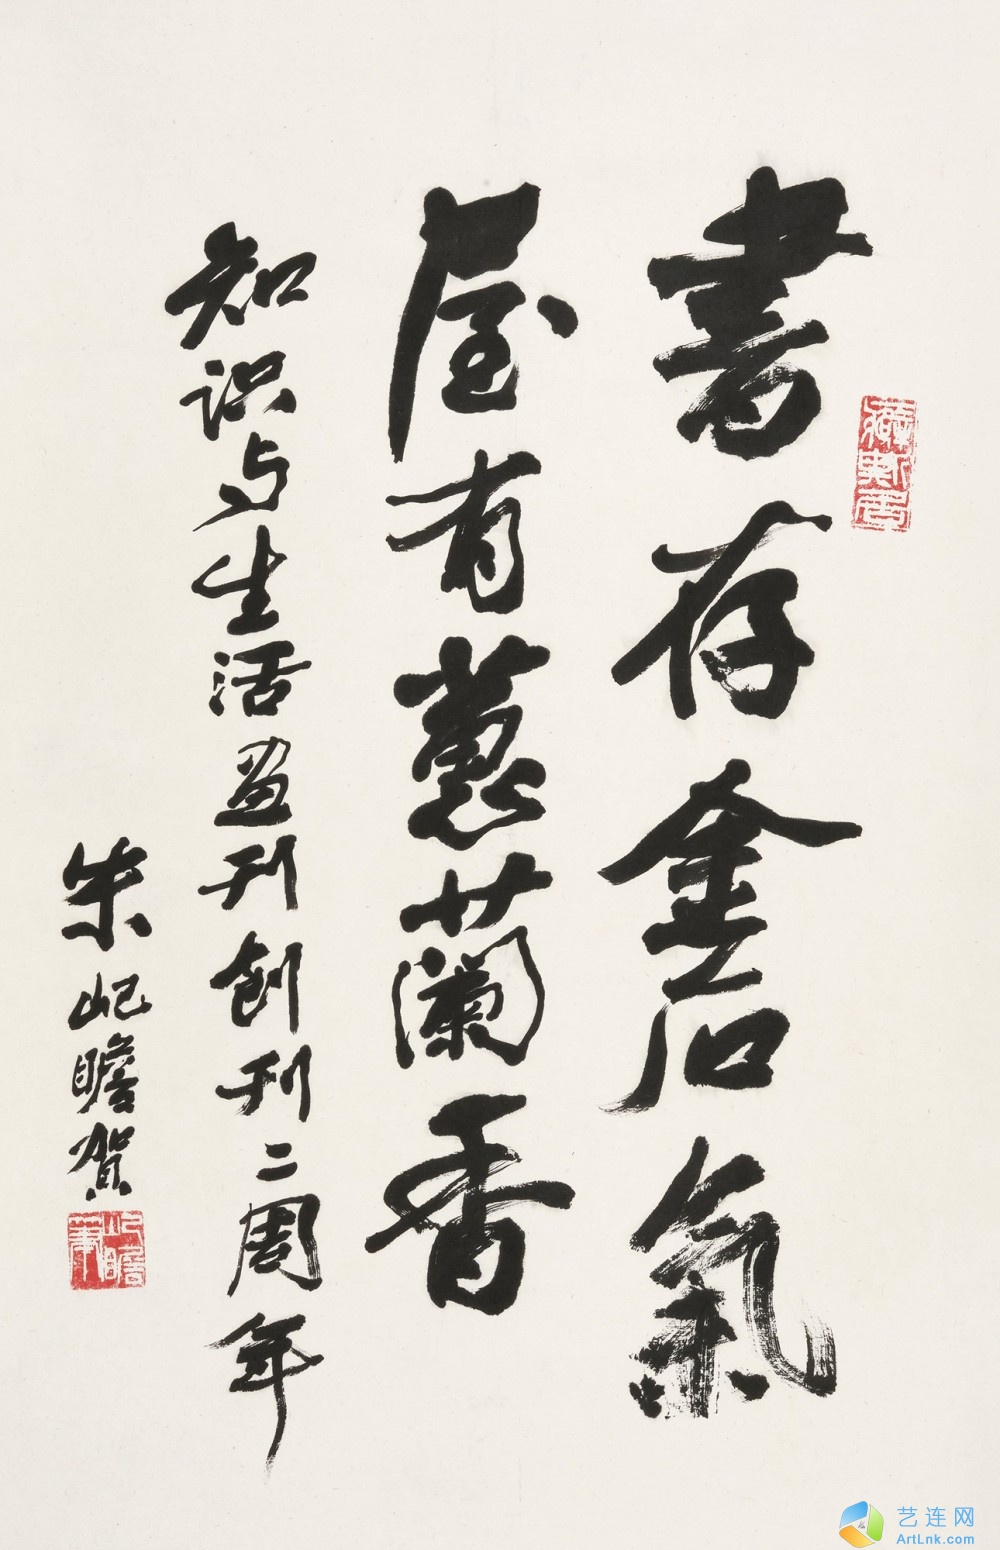 書存金石氣
屋有蕙蘭香
知识与生活画刊创刊二周年
朱屺瞻賀
艺连网
ArtLnk.com